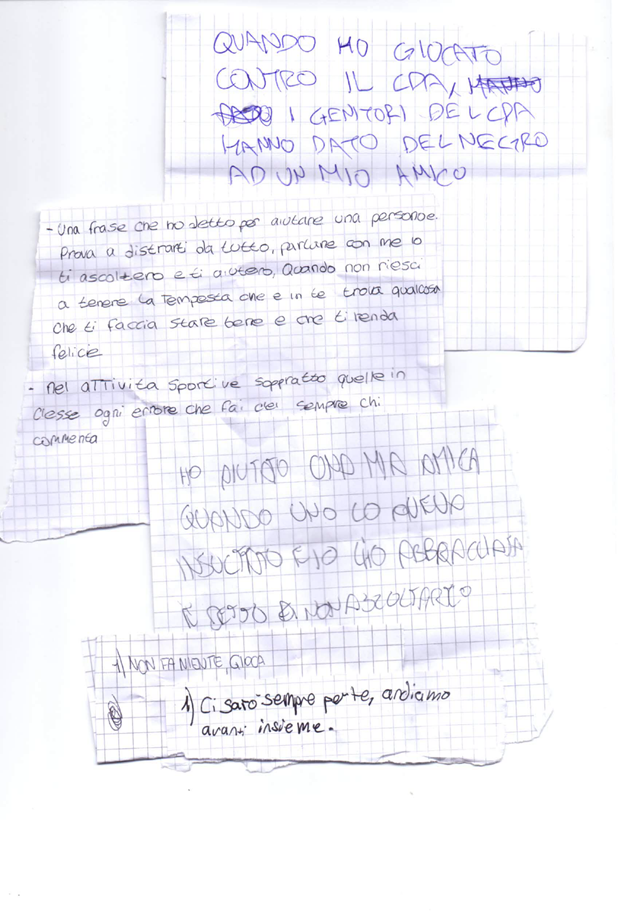 QUANDO HO GIOCATO
CONTRO IL CPA, HANNO
DATO I GENITORI DEL CPA
HANNO DATO DEL NEGRO
AD UN MIO AMICO
- Una frase che ho detto per aiutare una persona.
Prova a distrarti da tutto, parlane con me io
ti ascoltero e ti aiutero, Quando non riesci
a tenere la Tempesta che e in te trova qualcosa
che ti faccia stare bene e che ti renda
felice
- nel aTTivita Sportive soppratto quelle in
classe ogni errore che fai c'e sempre chi
commenta
HO AIUTATO UNA MIA AMICA
QUANDO UNO LO AVEVA
INSULTATO E IO L'HO ABBRACCIATA
E DETTO DI NON ASCOLTARLO
1) NON FA NIENTE, GIOCA
1) Ci saro sempre per te, andiamo
avanti insieme.